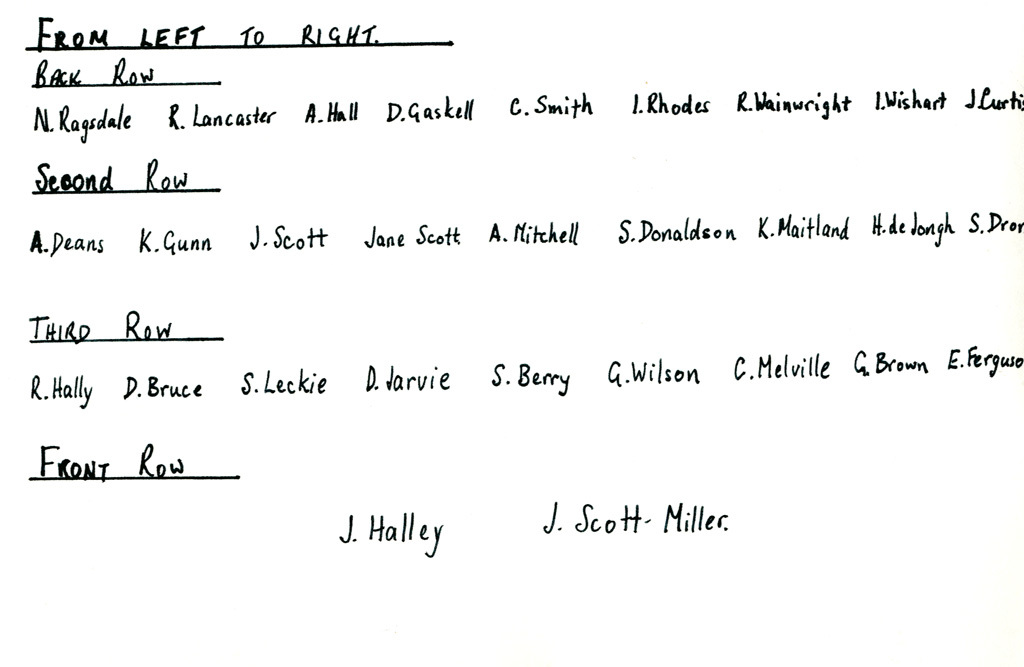 FROM LEFT TO RIGHT.
BACK ROW
N. Ragsdale R. Lancaster A. Hall D. Gaskell C. Smith I. Rhodes R. Wainwright I. Wishart J. Curtis
Second Row
A. Deans K. Gunn J. Scott Jane Scott A. Mitchell S. Donaldson K. Maitland H. de Jongh S. Dron
THIRD ROW
R. Hally D. Bruce S. Leckie D. Jarvie S. Berry G. Wilson C. Melville G. Brown E. Ferguso
FRONT ROW
J. Halley J. Scott-Miller.